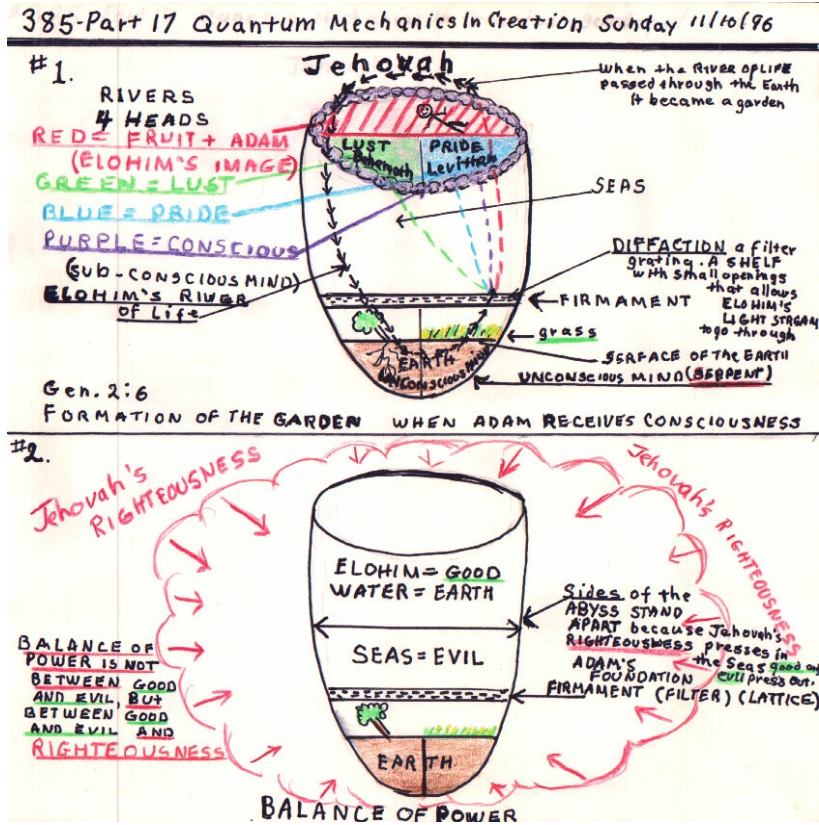 385-Part 17 Quantum Mechanics In Creation Sunday 11/10/96
#1.
Jehovah
When the RIVER OF LIFE
passed through the Earth
it became a garden
RIVERS
4 HEADS
RED = FRUIT + ADAM
(ELOHIM'S IMAGE)
GREEN = LUST
BLUE = PRIDE
PURPLE = CONSCIOUS
(SUB-CONSCIOUS MIND)
ELOHIM'S RIVER
of Life
LUST
Behemoth
PRIDE
Leviathan
SEAS
DIFFACTION a filter
grating. A SHELF
with small openings
that allows
ELOHIM'S
LIGHT STREAM
to go through
FIRMAMENT
grass
SERFACE OF THE EARTH
UNCONSCIOUS MIND (SERPENT)
EARTH
UNCONSCIOUS MIND
Gen. 2:6
FORMATION OF THE GARDEN WHEN ADAM RECEIVES CONSCIOUSNESS
#2.
Jehovah's
RIGHTEOUSNESS
Jehovah's RIGHTEOUSNESS
ELOHIM = GOOD
WATER = EARTH
SEAS = EVIL
Sides of the
ABYSS STAND
APART because Jehovah's
RIGHTEOUSNESS presses in
the Seas good and
evil press out.
ADAM'S
FOUNDATION
FIRMAMENT (FILTER) (LATTICE)
BALANCE OF
POWER IS NOT
BETWEEN GOOD
AND EVIL, BUT
BETWEEN GOOD
AND EVIL AND
RIGHTEOUSNESS
EARTH
BALANCE OF POWER